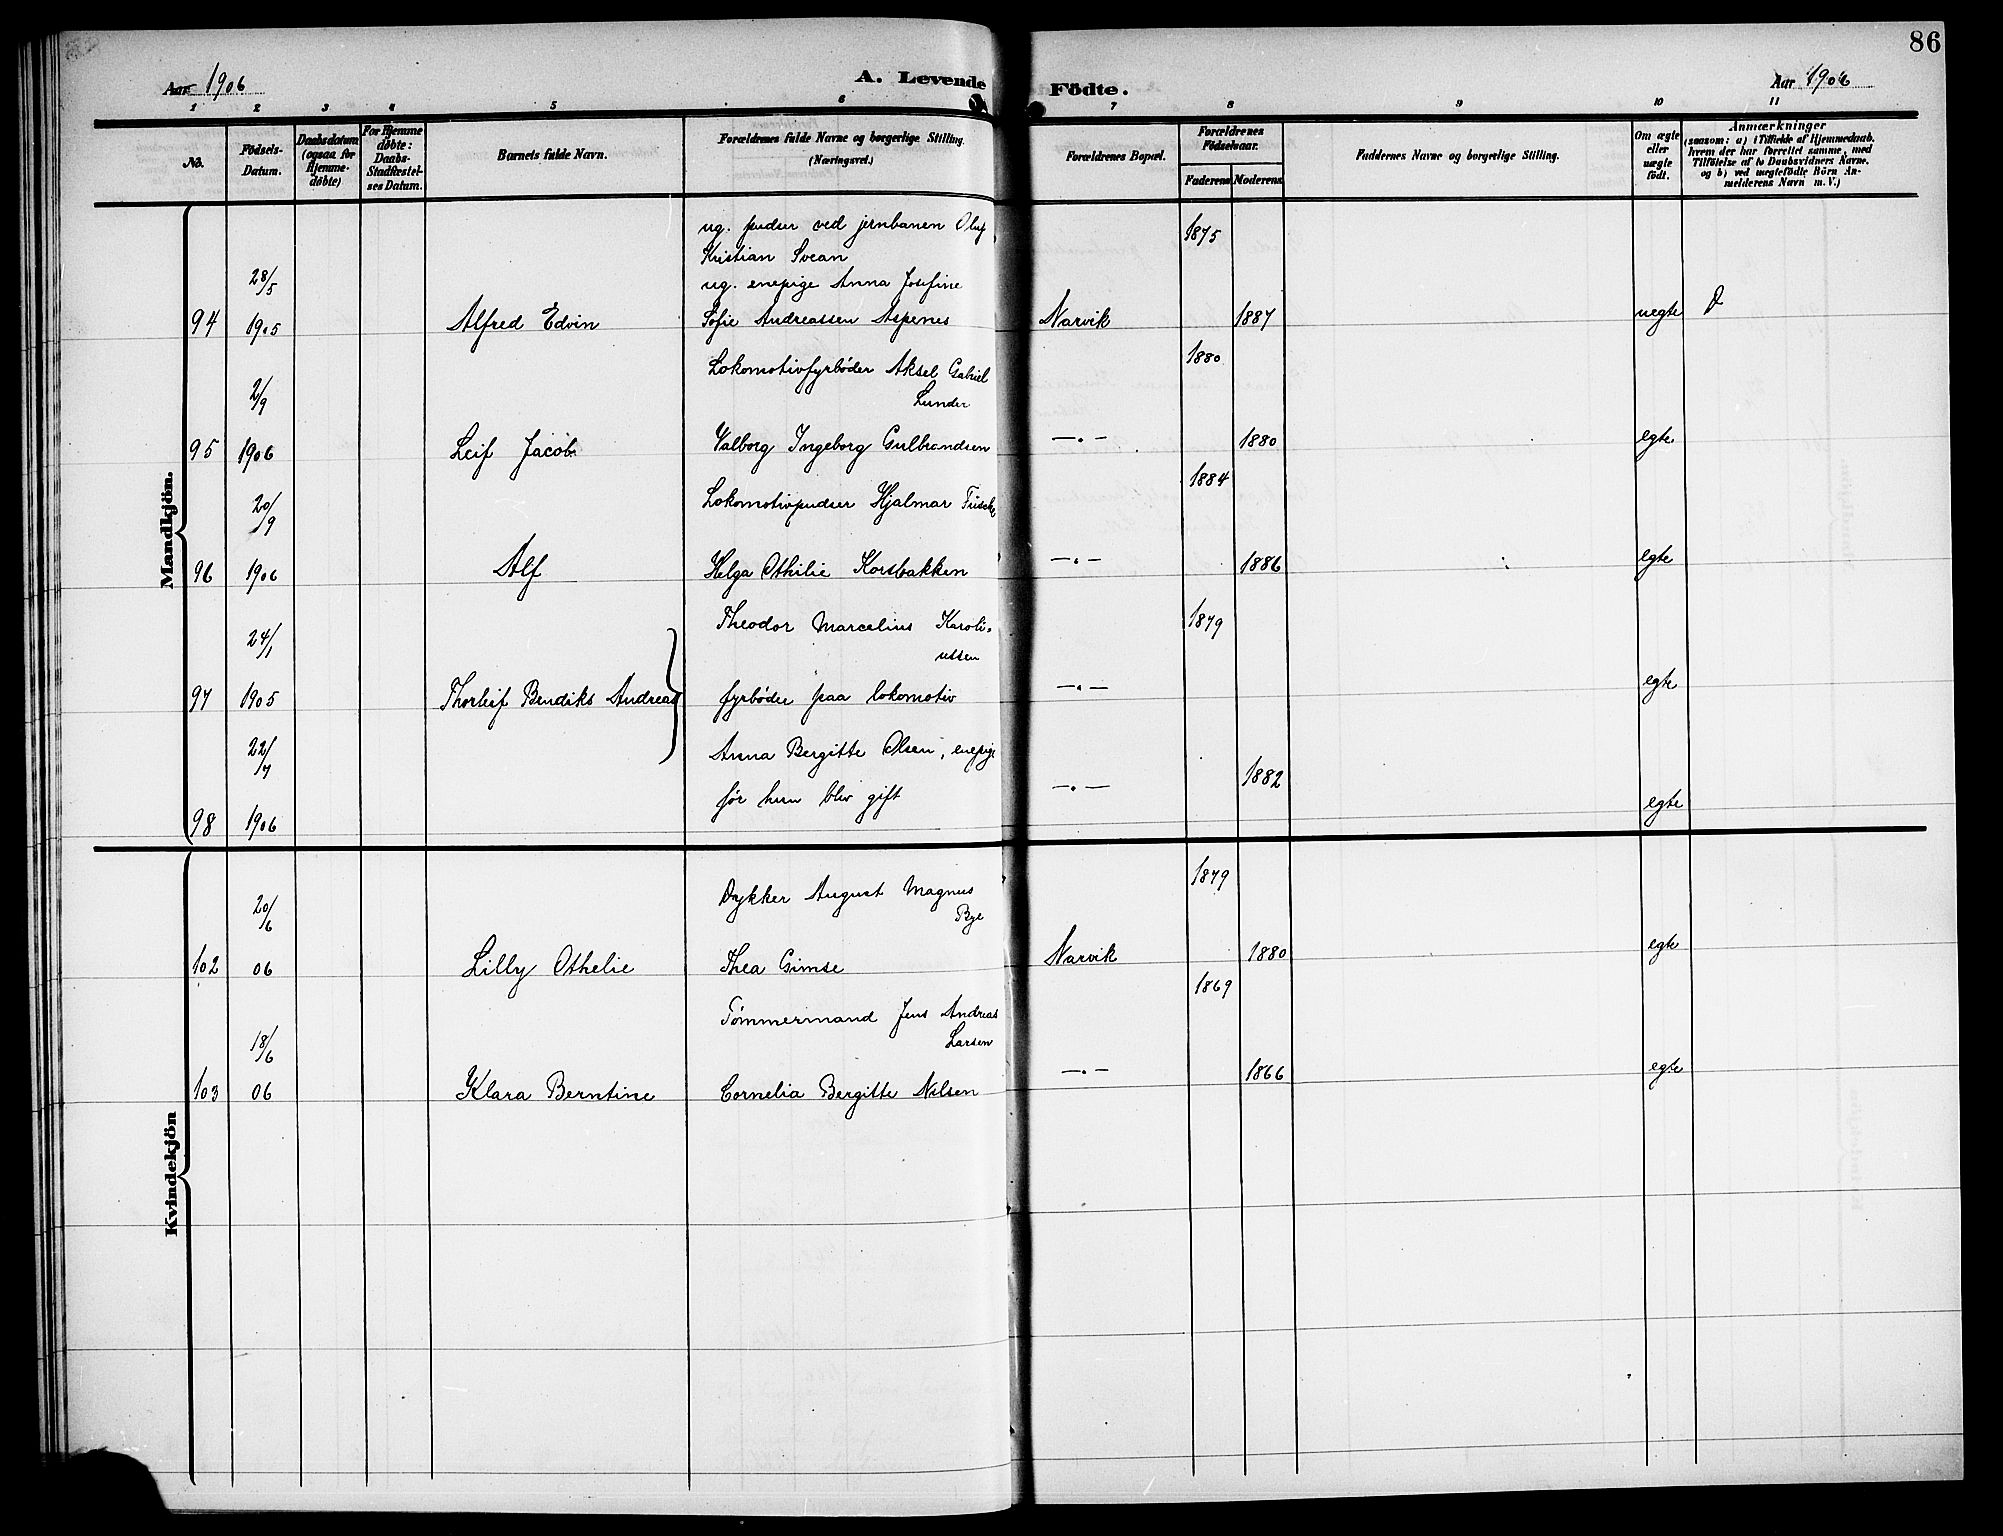 86
Aar 1906
A. Levende Födte.
Aar 1906
1 2 3 4 5 6 7 8 9 10 11
No.
Födsels-
Datum.
Daabsdatum
(ogsaa for
Hjemme-
døbte)
For Hjemme
døbte:
Daabs-
Stadfæstel-
ses Datum.
Barnets fulde Navn.
Forældrenes fulde Navne og borgerlige Stilling.
(Næringsvei.)
Forældrenes Bopæl.
Forældrenes
Födselsaar.
Faderens
Moderens
Faddernes Navne og borgerlige Stilling.
Om ægte
eller
uægte
födt.
Anmærkninger
(saasom: a) i Tilfælde af Hjemmedaab.
hvem der har forrettet samme, med
Tilföielse af to Daabsvidners Navne.
og b) ved uægtefödte Börn An-
melderens Navn m. V.)
Mandkjön.
ug. pudser ved jernbanen Oluf 1875
Kristian Svean
28/5 ug. enepige Anna Josefine
94 1905 Alfred Edvin Sofie Andreassen Aspenes Narvik 1887 uegte
Lokomotivfyrbøder Aksel Gabriel 1880
2/9 Lunder
95 1906 Leif Jacob Valborg Ingeborg Gulbrandsen —〃— 1880 egte
20/9 Lokomotivpudser Hjalmar 1884
96 1906 Alf Helga Othilie Korsbakken —〃— 1886 egte
24/1 Theodor Marcelius Karoli- 1879
ussen
97 1905 Thorleif Bendiks Andreas fyrbøder paa lokomotiv —〃— egte
22/7 Anna Bergitte Olsen, enepige
før hun blev gift —〃— 1882
98 1906 egte
Kvindekjön
Dykker August Magnus 1879
20/6 Bye
102 06 Lilly Othelie Thea Gimse Narvik 1880 egte
Tømmermand Jens Andreas 1869
18/6 Larsen
103 06 Klara Berntine Cornelia Bergitte Nilsen —〃— 1866 egte